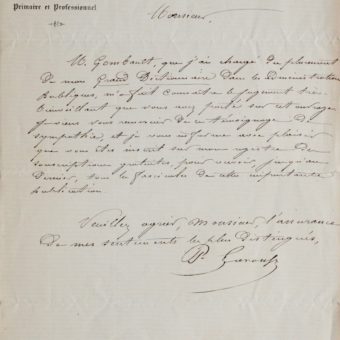 Primaire et Professionnel
Monsieur,
M. Gombault, que j'ai chargé du placement
de mon Grand Dictionnaire dans les Administrations
Publiques, m'a fait connaître le jugement très
bienveillant que vous avez porté sur cet ouvrage.
Je viens vous remercier de ce témoignage de
sympathie, et je vous informe avec plaisir
que vous êtes inscrit sur mon registre de
souscriptions gratuites pour recevoir, jusqu'au
dernier, tous les fascicules de cette importante
publication.
Veuillez agréer, Monsieur, l'assurance
de mes sentiments les plus distingués,
P. Larousse